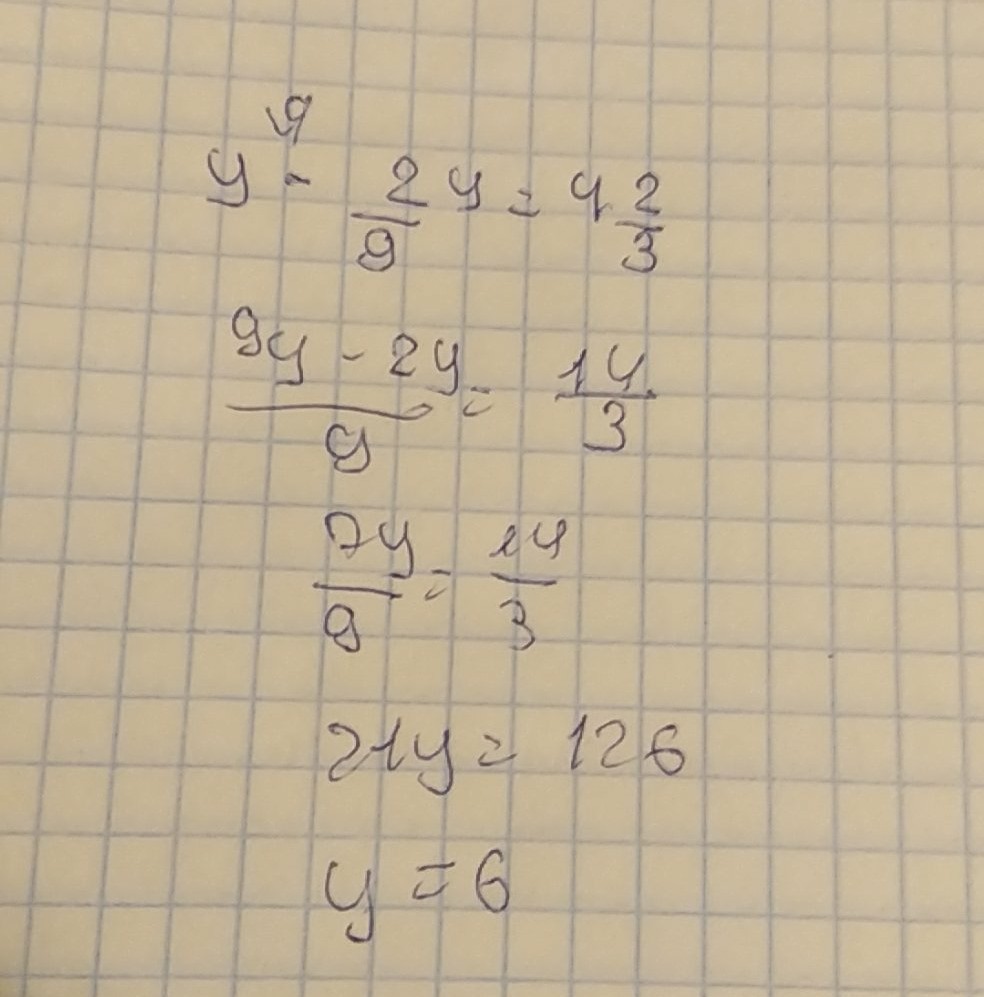 9
y - 2/9 y = 4 2/3
(9y - 2y)/9 = 14/3
7y/9 = 14/3
21y = 126
y = 6